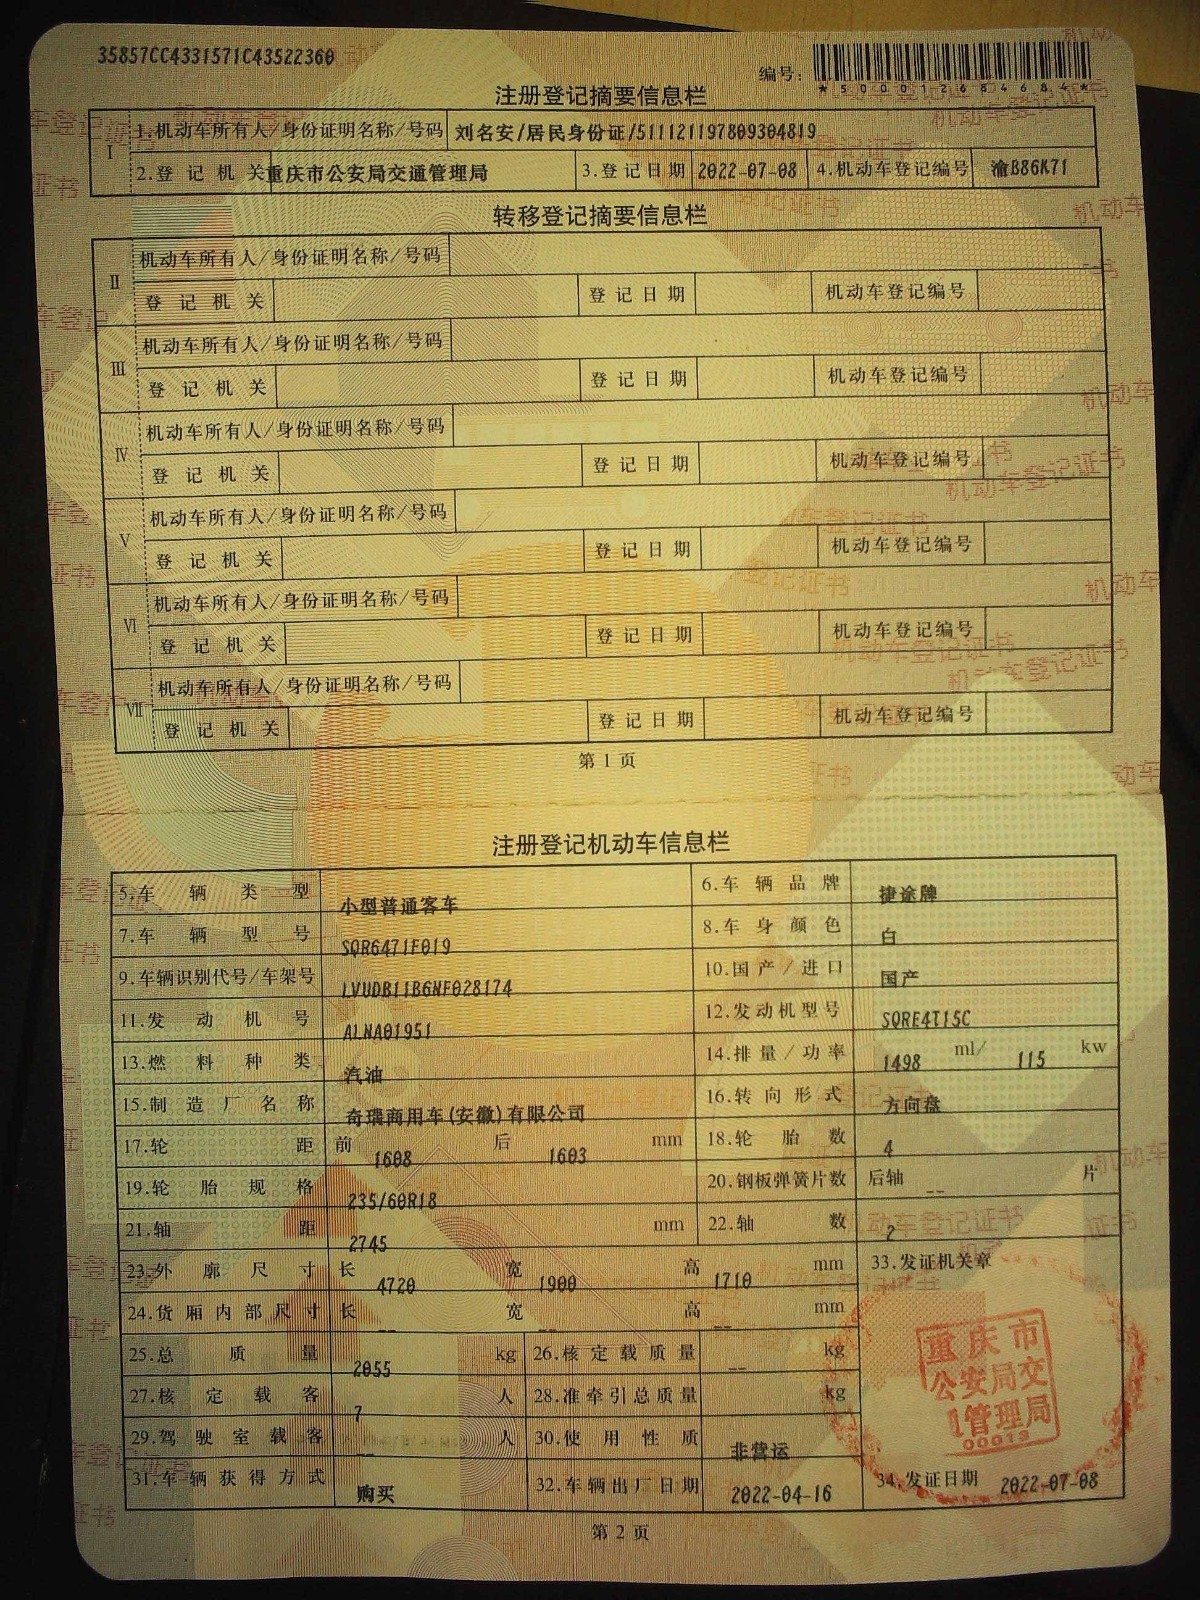 35857CC4331571C43522360
编号:
*500012684684*
注册登记摘要信息栏
I 1.机动车所有人/身份证明名称/号码 刘名安/居民身份证/511121197809304819
2.登记机关 重庆市公安局交通管理局 3.登记日期 2022-07-08 4.机动车登记编号 渝B86K71
转移登记摘要信息栏
II 机动车所有人/身份证明名称/号码
登记机关 登记日期 机动车登记编号
III 机动车所有人/身份证明名称/号码
登记机关 登记日期 机动车登记编号
IV 机动车所有人/身份证明名称/号码
登记机关 登记日期 机动车登记编号
V 机动车所有人/身份证明名称/号码
登记机关 登记日期 机动车登记编号
VI 机动车所有人/身份证明名称/号码
登记机关 登记日期 机动车登记编号
VII 机动车所有人/身份证明名称/号码
登记机关 登记日期 机动车登记编号
第 1 页
注册登记机动车信息栏
5.车辆类型 小型普通客车 6.车辆品牌 捷途牌
7.车辆型号 SQR6471F019 8.车身颜色 白
9.车辆识别代号/车架号 LVUDB11B6NF028174 10.国产/进口 国产
11.发动机号 ALNA01951 12.发动机型号 SQRE4T15C
13.燃料种类 汽油 14.排量/功率 1498 ml/ 115 kw
15.制造厂名称 奇瑞商用车(安徽)有限公司 16.转向形式 方向盘
17.轮距 前 1608 后 1603 mm 18.轮胎数 4
19.轮胎规格 235/60R18 20.钢板弹簧片数 后轴 -- 片
21.轴距 2745 mm 22.轴数 2
23.外廓尺寸 长 4720 宽 1900 高 1710 mm 33.发证机关章
24.货厢内部尺寸 长 -- 宽 -- 高 -- mm
25.总质量 2055 kg 26.核定载质量 -- kg
27.核定载客 7 人 28.准牵引总质量 kg
29.驾驶室载客 -- 人 30.使用性质 非营运
31.车辆获得方式 购买 32.车辆出厂日期 2022-04-16 34.发证日期 2022-07-08
重庆市
公安局交
通管理局
00013
第 2 页